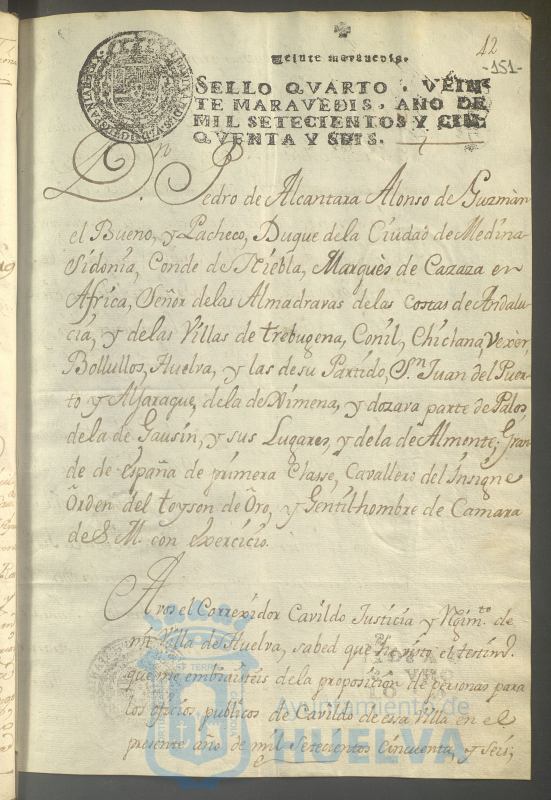 42
-151-
Veinte maravedis.
SELLO QVARTO, VEIN
TE MARAVEDIS, AÑO DE
MIL SETECIENTOS Y CIN
QVENTA Y SEIS.
Dn. Pedro de Alcantara Alonso de Guzmàn
el Bueno, y Pacheco, Duque dela Ciudad de Medina
Sidonia, Conde de Niebla, Marquès de Cazaza en
Africa, Señor delas Almadravas de las costas de Andalu
cia, y delas Villas de trebugena, Conil, Chiclana, Vexer,
Bollullos, Huelva, y las desu Partido, Sn. Juan del Puer
to y Aljaraque, dela de Ximena, y dozava parte de Palos,
dela de Gausin, y sus Lugares, y dela de Almonte; Gran
de de España de primera Classe, Cavallero del Insigne
Orden del toyson de Oro, y Gentilhombre de Camara
de S. M. con exercicio.
A vos el Correxidor Cavildo Justicia y Rgimto. de
mi Villa de Huelva, sabed que he visto el testimo.
que me embiasteis dela proposicion de personas para
los oficios publicos de Cavildo de essa Villa en el
presente año de mil Setecientos Cincuenta, y Seis;
Ayuntamiento de
HUELVA